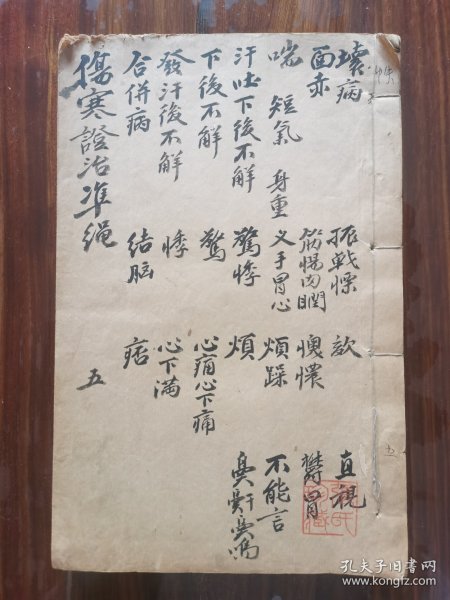 壞病 振戰慄 欬 直視
面赤 筋惕肉瞤 懊憹 鬱冒
喘 短氣 身重 叉手冒心 煩躁 不能言
汗吐下後不解 驚悸 煩 鼻鼾鼻鳴
下後不解 驚 心痛心下痛
發汗後不解 悸 心下滿
合併病 結胸 痞
傷寒證治准繩 五
五
孔夫子旧书网